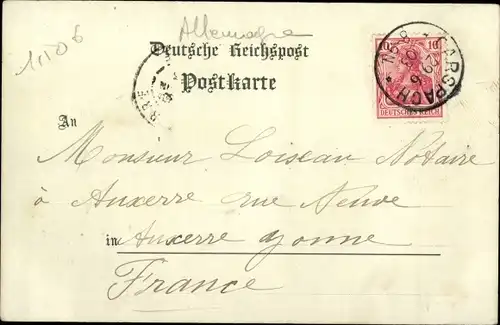 Allemagne
Deutsche Reichspost
Postkarte
CARSPACH
10 10
DEUTSCHES REICH
An
Monsieur Loiseau Notaire
à Auxerre rue Neuve
in Auxerre Yonne
France